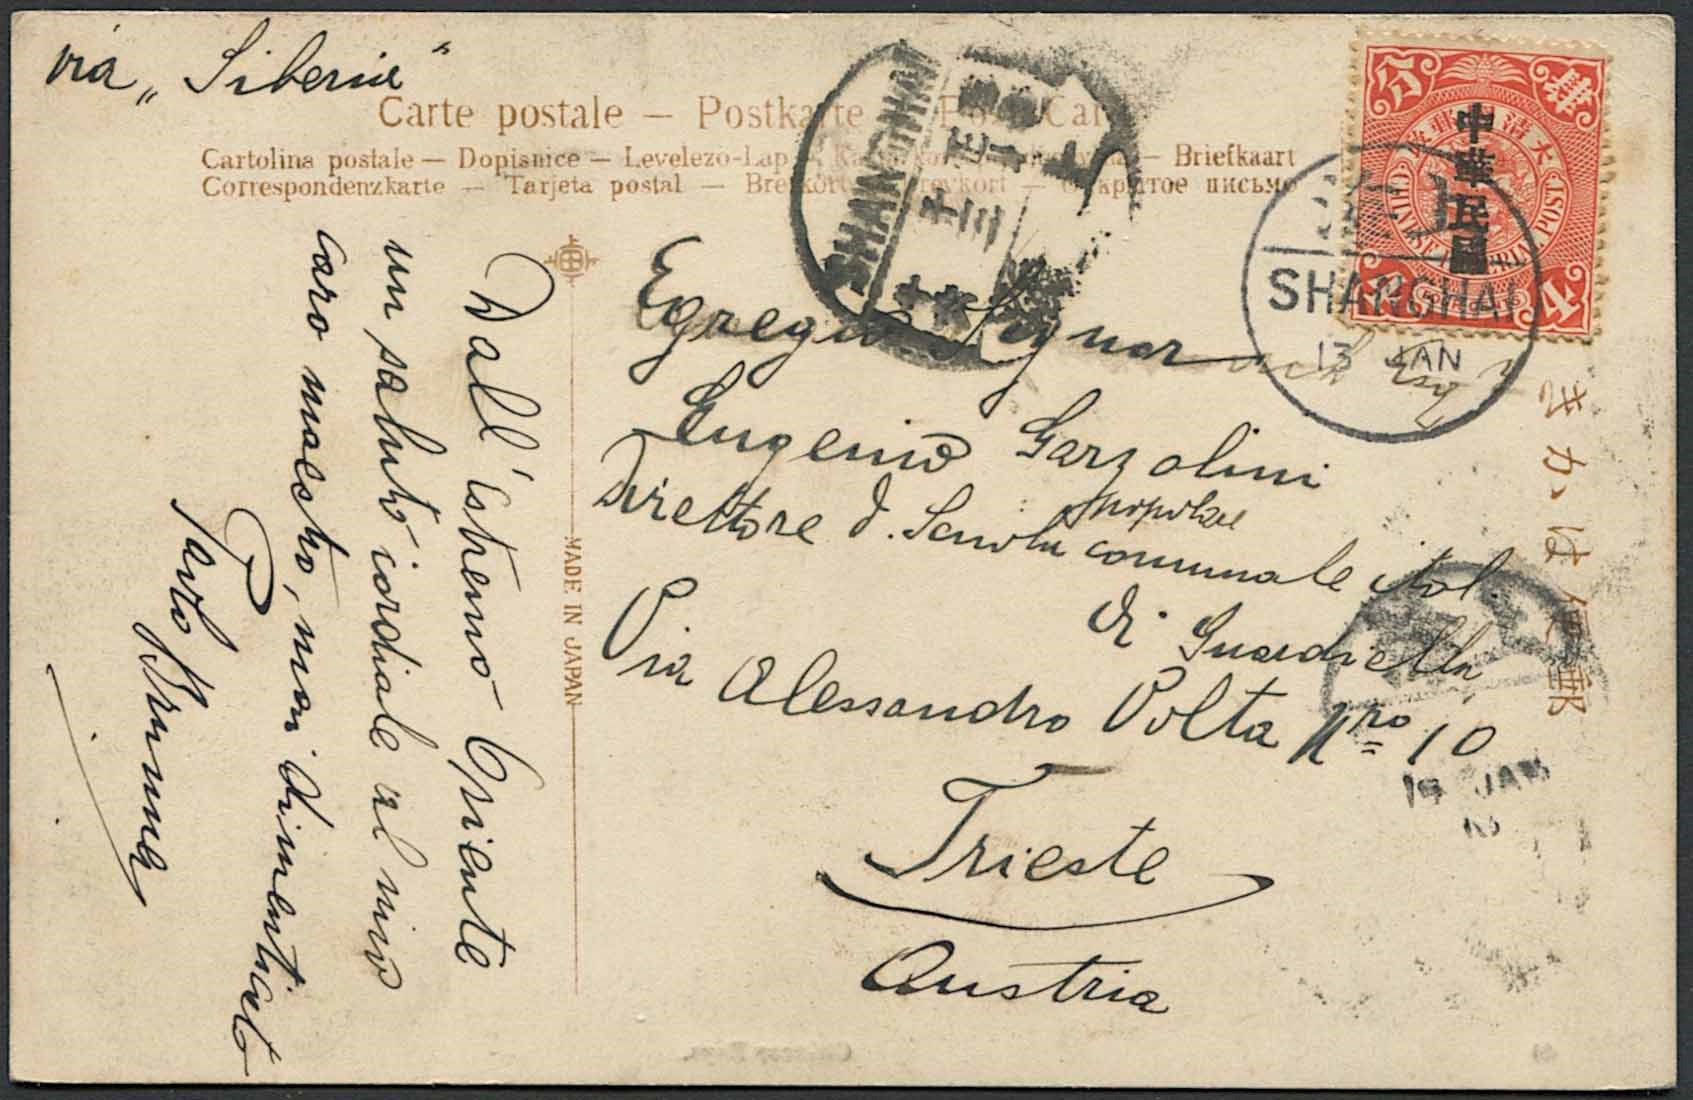 via „Siberia“
Carte postale — Postkarte — Post Card
Cartolina postale — Dopisnice — Levelezö-Lap — — Briefkaart
Correspondenzkarte — Tarjeta postal — Brefkort — Brevkort — Открытое письмо
SHANGHAI
大清郵政
CHINESE IMPERIAL POST
中華民國
4
SHANGHAI
13 JAN
きかは便郵
MADE IN JAPAN
Dall'estremo Oriente
un saluto cordiale al mio
caro maestro, mai dimenticato
Egregio Signor
Eugenio Garzolini
Direttore d. Scuola popolare comunale ital.
di Guardiella
Via Alessandro Volta Nro 10
Trieste
Austria
JAN